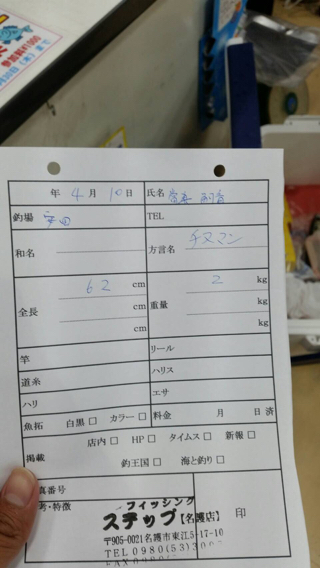 年 4 月 10 日 氏名
釣場 安田 TEL
和名 方言名 チヌマン
62 cm 2 kg
全長 cm 重量 kg
cm kg
竿 リール
道糸 ハリス
ハリ エサ
魚拓 白黒 □ カラー □ 料金 月 日 済
店内 □ HP □ タイムス □ 新報 □
掲載
釣王国 □ 海と釣り □
真番号
考・特徴
フィッシング
ステップ【名護店】 印
〒905-0021名護市東江5-17-10
TEL0980(53)